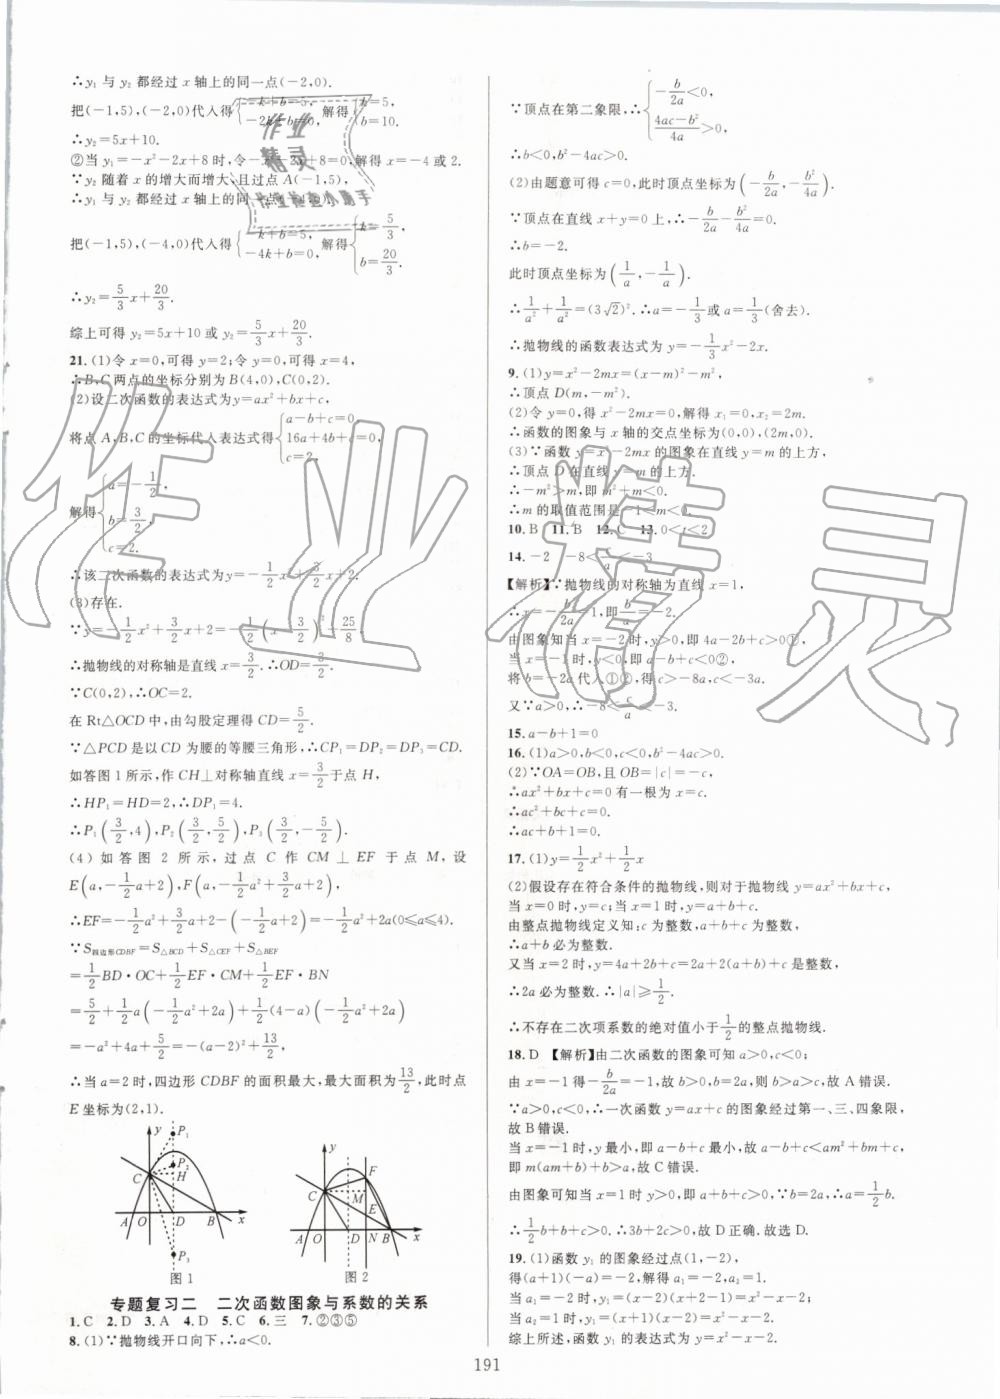 ∴y₁ 与 y₂ 都经过 x 轴上的同一点(-2,0).
把(-1,5),(-2,0)代入得{-k+b=5, -2k+b=0, 解得{k=5, b=10.
∴y₂=5x+10.
②当 y₁=-x²-2x+8时,令-x²-2x+8=0,解得 x=-4或2.
∵y₂ 随着 x 的增大而增大,且过点 A(-1,5),
∴y₁ 与 y₂ 都经过 x 轴上的同一点(-4,0),
把(-1,5),(-4,0)代入得{-k+b=5, -4k+b=0, 解得{k=5/3, b=20/3.
∴y₂=5/3x+20/3.
综上可得 y₂=5x+10 或 y₂=5/3x+20/3.
21.(1)令 x=0,可得 y=2;令 y=0,可得 x=4,
∴B、C 两点的坐标分别为 B(4,0),C(0,2).
(2)设二次函数的表达式为y=ax²+bx+c,
将点 A、B、C 的坐标代入表达式得{a-b+c=0, 16a+4b+c=0, c=2,
解得{a=-1/2, b=3/2, c=2.
∴该二次函数的表达式为y=-1/2x²+3/2x+2.
(3)存在.
∵y=-1/2x²+3/2x+2=-1/2(x-3/2)²+25/8
∴抛物线的对称轴是直线 x=3/2.∴OD=3/2.
∵C(0,2),∴OC=2.
在 Rt△OCD 中,由勾股定理得 CD=5/2.
∵△PCD 是以 CD 为腰的等腰三角形,∴CP₁=DP₂=DP₃=CD.
如答图 1 所示,作 CH⊥对称轴直线 x=3/2于点 H,
∴HP₁=HD=2,∴DP₁=4.
∴P₁(3/2,4),P₂(3/2,5/2),P₃(3/2,-5/2).
(4)如答图 2 所示,过点 C 作 CM⊥EF 于点 M,设
E(a,-1/2a+2),F(a,-1/2a²+3/2a+2),
∴EF=-1/2a²+3/2a+2-(-1/2a+2)=-1/2a²+2a(0≤a≤4).
∵S四边形CDBF=S△BCD+S△CEF+S△BEF
=1/2BD·OC+1/2EF·CM+1/2EF·BN
=5/2+1/2a(-1/2a²+2a)+1/2(4-a)(-1/2a²+2a)
=-a²+4a+5/2=-(a-2)²+13/2,
∴当 a=2 时,四边形 CDBF 的面积最大,最大面积为13/2,此时点
E 坐标为(2,1).
y P₁ P₂ C H A O D B x P₃
图 1
y F C M E A O D N B x
图 2
专题复习二 二次函数图象与系数的关系
1.C 2.D 3.A 4.D 5.C 6.三 7.②③⑤
8.(1)∵抛物线开口向下,∴a<0.
∵顶点在第二象限,∴{-b/2a<0, (4ac-b²)/4a>0,
∴b<0,b²-4ac>0.
(2)由题意可得 c=0,此时顶点坐标为(-b/2a,-b²/4a).
∵顶点在直线 x+y=0 上,∴-b/2a-b²/4a=0.
∴b=-2.
此时顶点坐标为(1/a,-1/a).
∴1/a²+1/a²=(3√2)².∴a=-1/3或 a=1/3(舍去).
∴抛物线的函数表达式为 y=-1/3x²-2x.
9.(1)y=x²-2mx=(x-m)²-m²,
∴顶点 D(m,-m²).
(2)令 y=0,得 x²-2mx=0,解得 x₁=0,x₂=2m.
∴函数的图象与 x 轴的交点坐标为(0,0),(2m,0).
(3)∵函数 y=x²-2mx 的图象在直线 y=m 的上方.
∴顶点 D 在直线 y=m 的上方.
∴-m²>m,即 m²+m<0.
∴m 的取值范围是-1<m<0.
10.B 11.B 12.C 13.0<t<2
14.-2 -8<c/a<-3
【解析】∵抛物线的对称轴为直线 x=1,
∴x=-b/2a=1,即b/a=-2.
由图象知当 x=-2 时,y>0,即 4a-2b+c>0①,
当 x=-1 时,y<0,即 a-b+c<0②,
将 b=-2a 代入①②,得 c>-8a,c<-3a.
又∵a>0,∴-8<c/a<-3.
15.a-b+1=0
16.(1)a>0,b<0,c<0,b²-4ac>0.
(2)∵OA=OB,且 OB=|c|=-c,
∴ax²+bx+c=0 有一根为 x=c.
∴ac²+bc+c=0.
∴ac+b+1=0.
17.(1)y=1/2x²+1/2x
(2)假设存在符合条件的抛物线,则对于抛物线 y=ax²+bx+c,
当 x=0 时,y=c;当 x=1 时,y=a+b+c.
由整点抛物线定义知:c 为整数,a+b+c 为整数,
∴a+b 必为整数.
又当 x=2 时,y=4a+2b+c=2a+2(a+b)+c 是整数,
∴2a 必为整数.∴|a|≥1/2.
∴不存在二次项系数的绝对值小于1/2的整点抛物线.
18.D 【解析】由二次函数的图象可知 a>0,c<0;
由 x=-1 得-b/2a=-1,故 b>0,b=2a,则 b>a>c,故 A 错误.
∵a>0,c<0,∴一次函数 y=ax+c 的图象经过第一、三、四象限,
故 B 错误.
当 x=-1 时,y 最小,即 a-b+c 最小,故 a-b+c<am²+bm+c,
即 m(am+b)+b>a,故 C 错误.
由图象可知当 x=1 时 y>0,即 a+b+c>0,∵b=2a,∴a=1/2b.
∴1/2b+b+c>0.∴3b+2c>0,故 D 正确.故选 D.
19.(1)函数 y₁ 的图象经过点(1,-2),
得(a+1)(-a)=-2,解得 a₁=-2,a₂=1.
当 a₁=-2 时,y₁=(x-2)(x+2-1)=x²-x-2;
当 a₂=1 时,y₁=(x+1)(x-2)=x²-x-2.
综上所述,函数 y₁ 的表达式为 y=x²-x-2.
191
作业精灵
作业检查小助手
作业精灵